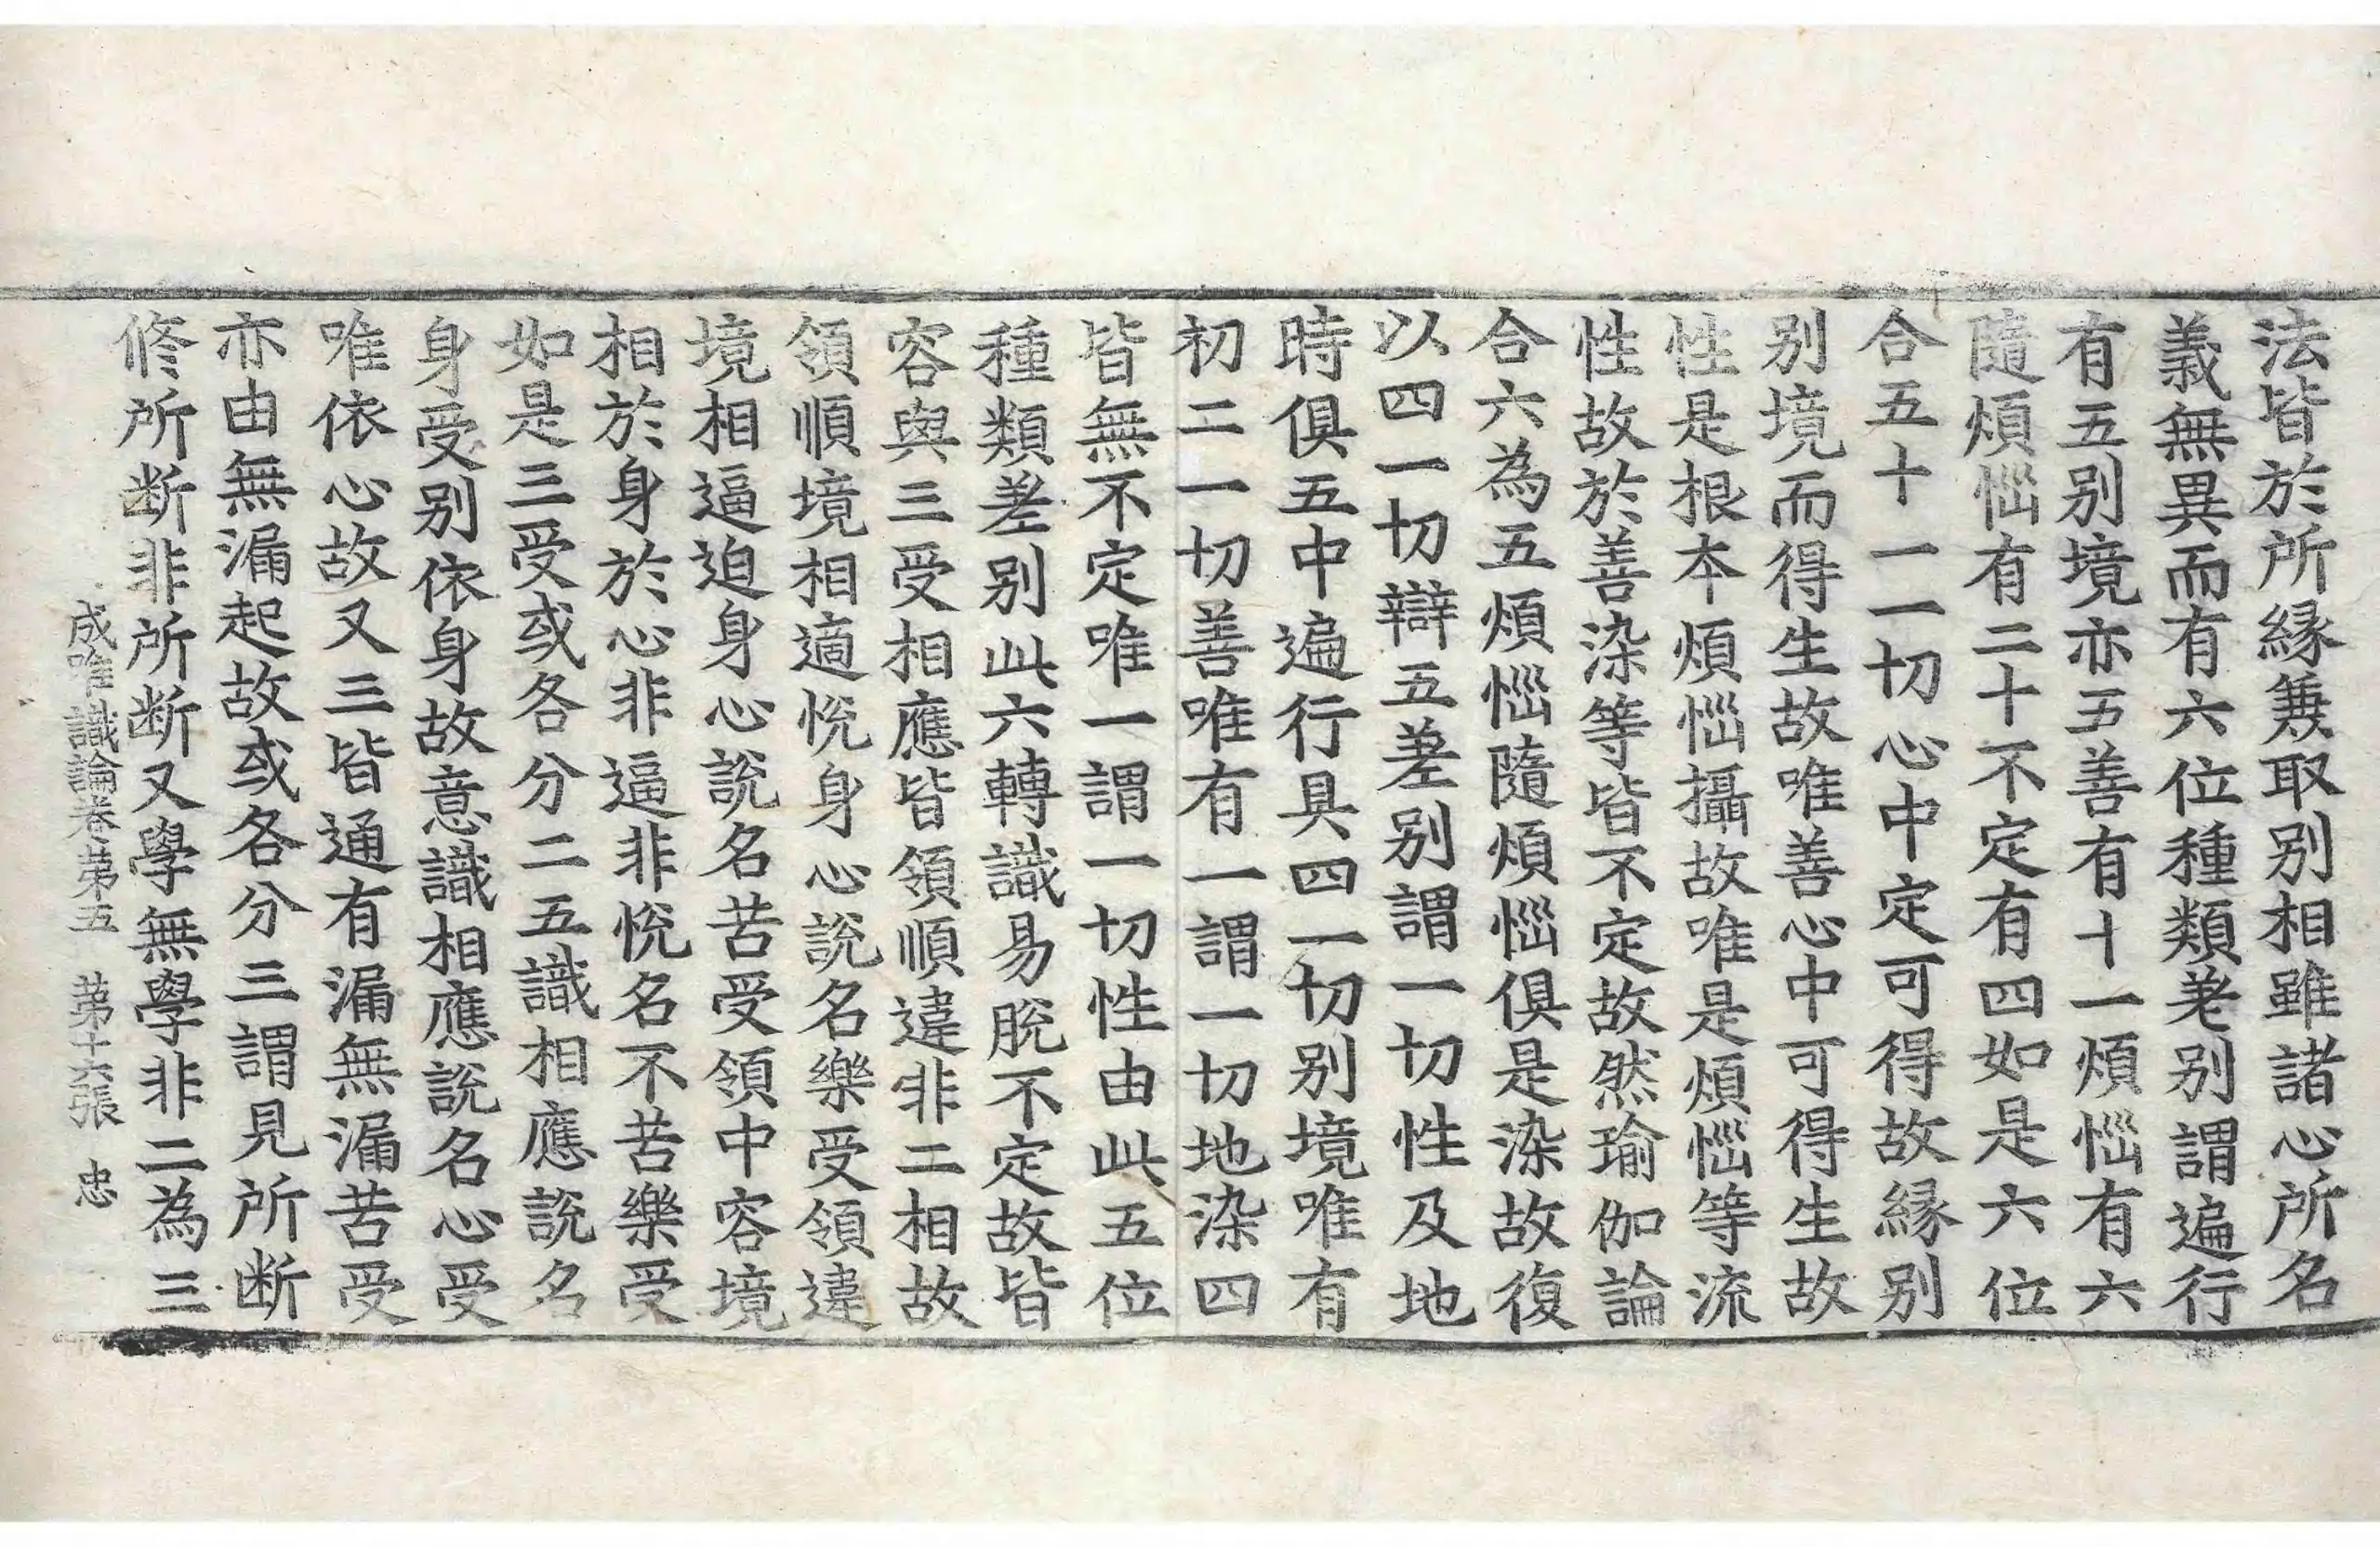 法皆於所縁兼取別相雖諸心所名
義無異而有六位種類差別謂遍行
有五別境亦五善有十一煩惱有六
隨煩惱有二十不定有四如是六位
合五十一一切心中定可得故縁別
別境而得生故唯善心中可得生故
性是根本煩惱攝故唯是煩惱等流
性故於善染等皆不定故然瑜伽論
合六為五煩惱隨煩惱俱是染故復
以四一切辯五差別謂一切性及地
時俱五中遍行具四一切別境唯有
初二一切善唯有一謂一切地染四
皆無不定唯一謂一切性由此五位
種類差別此六轉識易脫不定故皆
容與三受相應皆領順違非二相故
領順境相適悅身心說名樂受領違
境相逼迫身心說名苦受領中容境
相於身於心非逼非悅名不苦樂受
如是三受或各分二五識相應說名
身受別依身故意識相應說名心受
唯依心故又三皆通有漏無漏苦受
亦由無漏起故或各分三謂見所断
修所断非所断又學無學非二為三
成唯識論卷第五　第十六張　忠